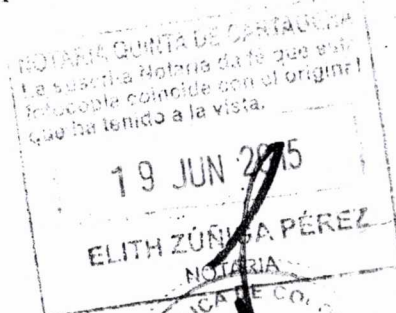 NOTARIA QUINTA DE CARTAGENA
La suscrita Notaria da fe que esta
fotocopia coincide con el original
que ha tenido a la vista.
19 JUN 2015
ELITH ZÚÑIGA PÉREZ
NOTARIA
ICA DE COL